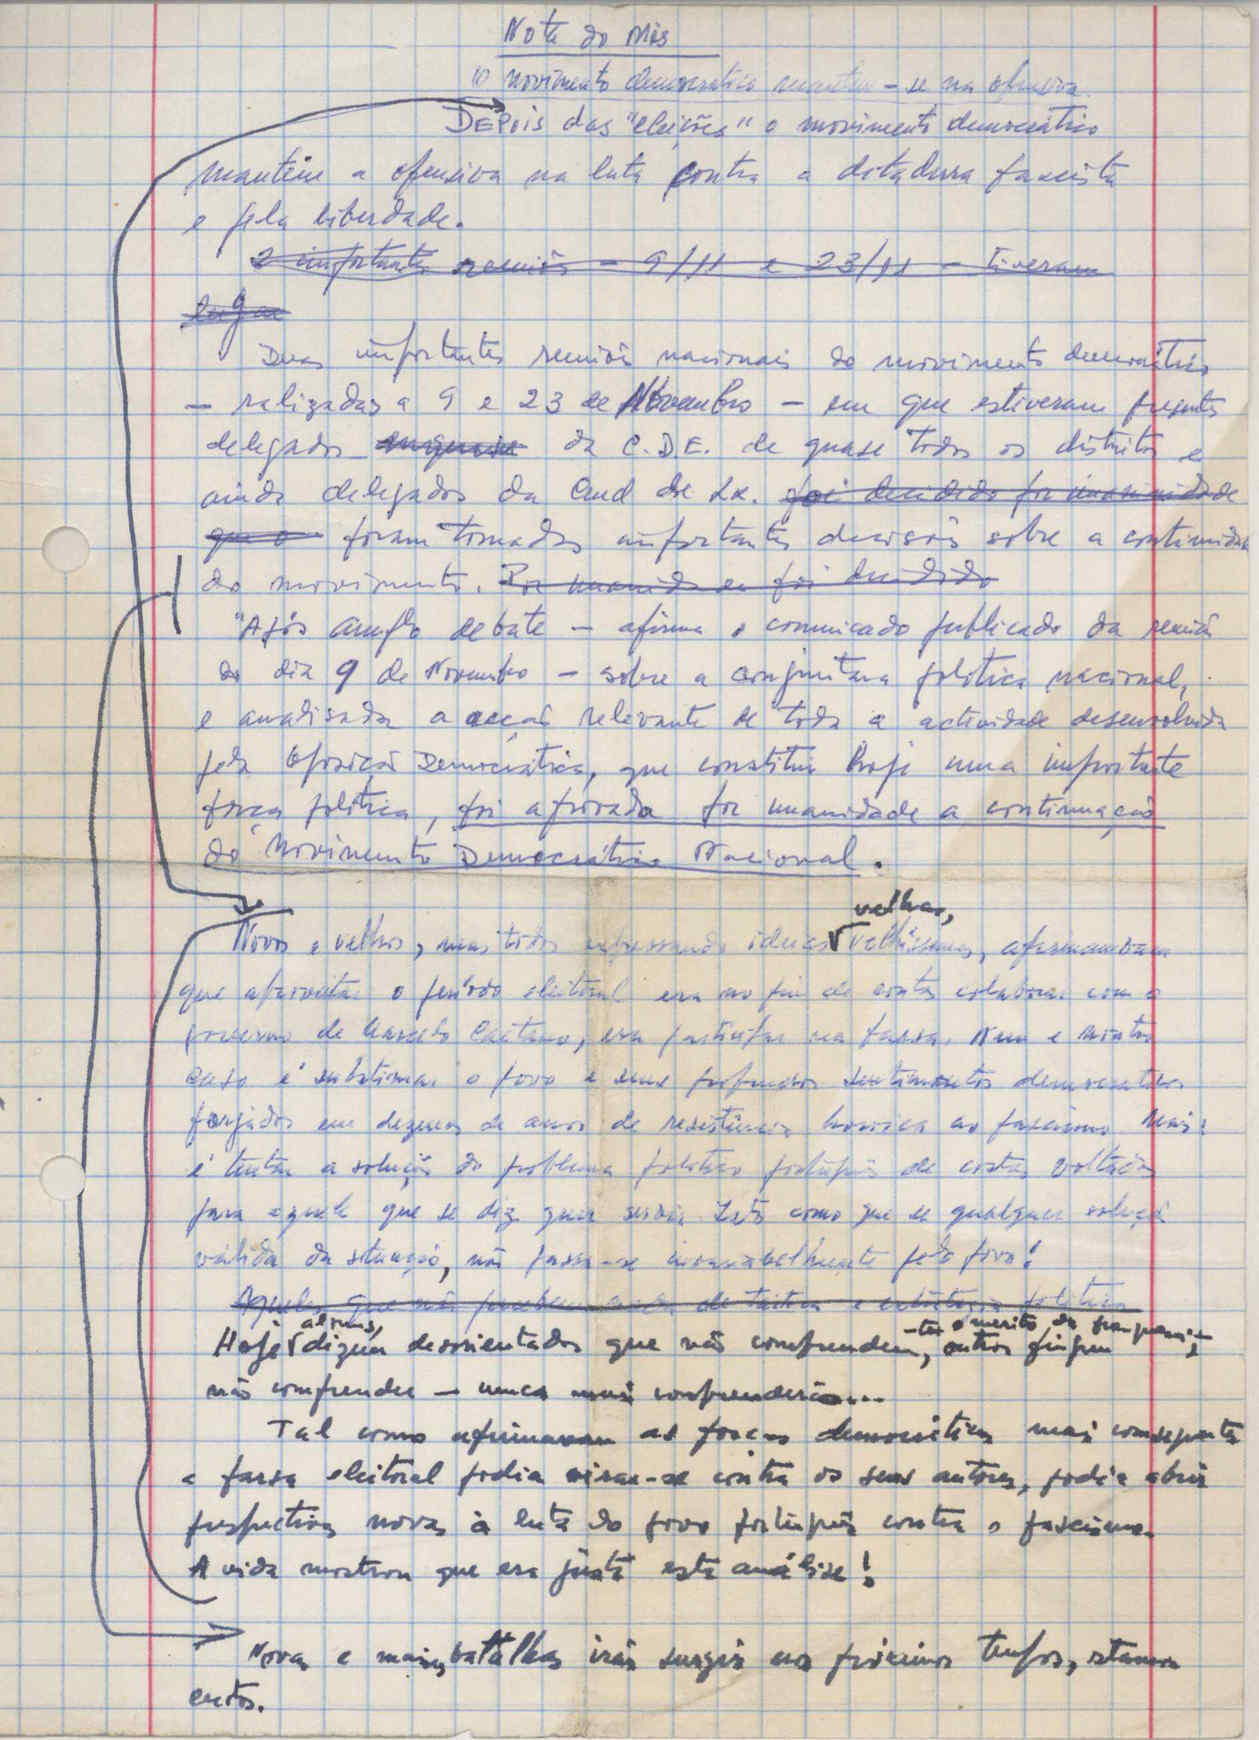 Nota do Mês
"O movimento democratico mantem-se na ofensiva
DEPois das "eleições" o movimento democrático
mantem a ofensiva na luta contra a ditadura fascista
e pela liberdade.
2 importantes reuniões - 9/11 e 23/11 - tiveram
lugar
Duas importantes reuniões nacionais do movimento democrático
- realizadas a 9 e 23 de Novembro - em que estiveram presentes
delegados da C.D.E. de quase todos os distritos e
ainda delegados da de Lx. foi decidido por unanimidade
que o foram tomadas importantes decisões sobre a continuidade
do movimento. Por unanimidade foi decidido
"Após amplo debate - afirma o comunicado publicado da reunião
do dia 9 de Novembro - sobre a conjuntura política nacional,
e analisada a acção relevante de toda a actividade desenvolvida
pela Oposição Democrática, que constitui hoje uma importante
força política, foi aprovada por unanimidade a continuação
do Movimento Democrático Nacional.
velhas,
Novos e velhos, mas todos expressando ideias velhíssimas, afirmavam
que aproveitar o período eleitoral era no fim de contas colaborar com o
governo de Marcelo Caetano, era participar na farsa. Num e noutro
caso é subestimar o povo e seus profundos sentimentos democraticos
forjados em dezenas de anos de resistência heroica ao fascismo. Mais:
é tentar a solução do problema politico português de costas voltadas
para aquele que se diz querer servir. Isto como que se qualquer solução
válida da situação, não passa-se pelo povo!
Aqueles que não percebem nada de táctica e estratégia politica
alguns, -ter o mérito da franqueza;
Hoje dizem desorientados que não compreendem, outros fingem
não compreender - nunca mais compreenderão...
Tal como afirmavam as forças democráticas mais consequentes
a farsa eleitoral podia virar-se contra os seus autores, podia abrir
perspectivas novas à luta do povo português contra o fascismo.
A vida mostrou que era justa esta análise!
Novas e mais batalhas irão surgir nos próximos tempos, estamos
certos.